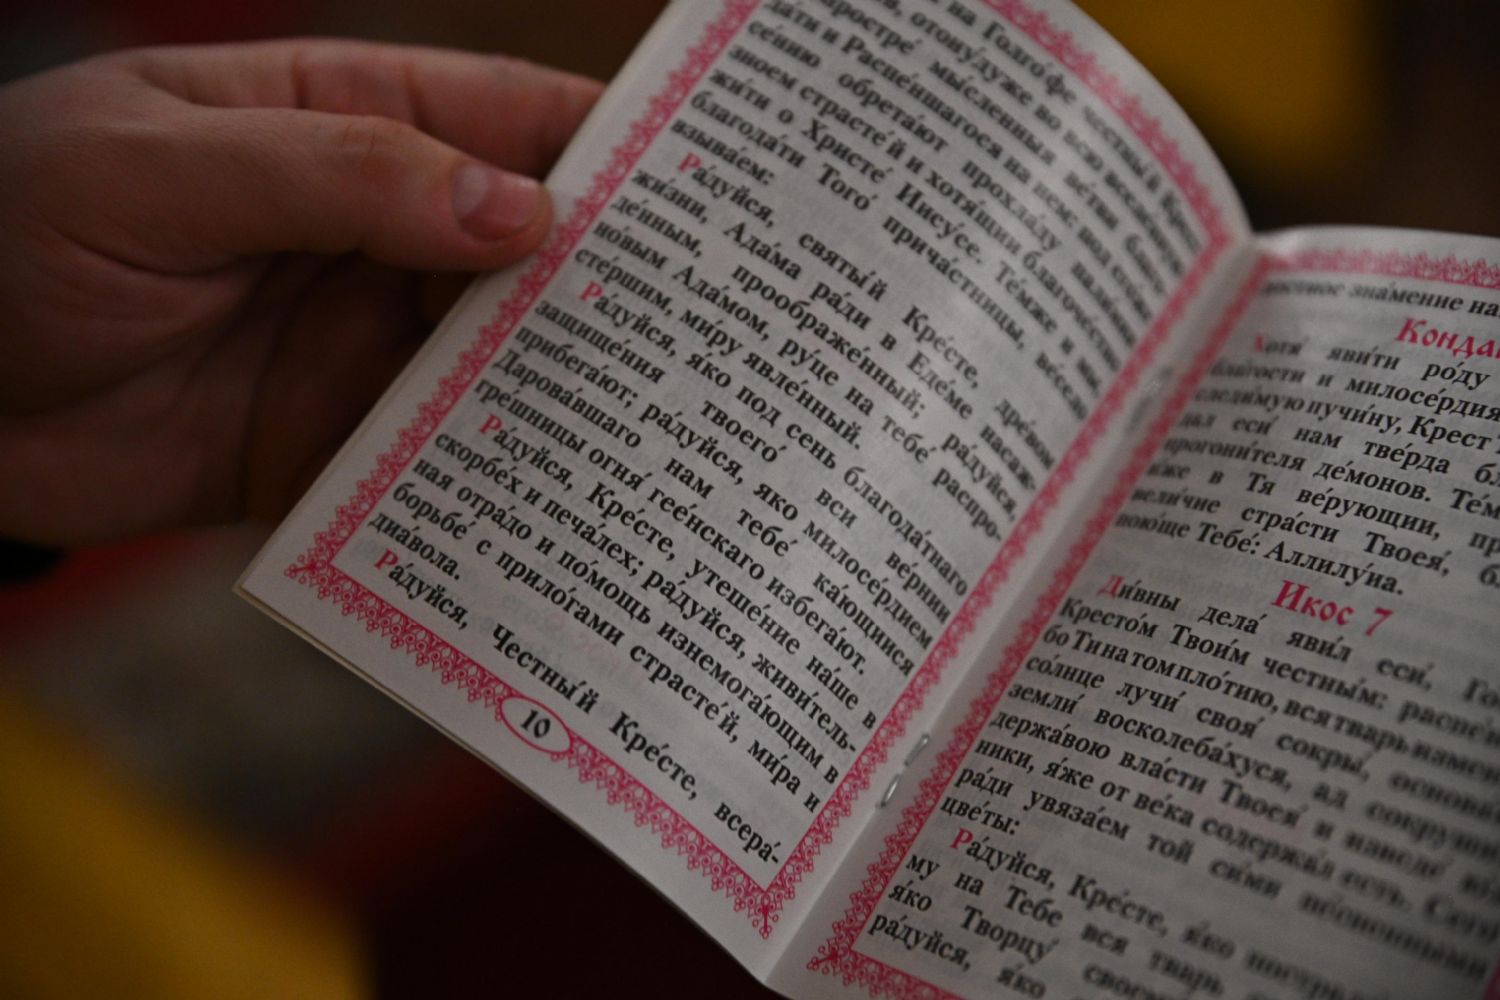 на Голго́фе честны́й Крест
отону́дуже во всю вселе́нную
простре́ мы́сленныя ве́тви благо-
да́ти и Распе́ншагося на нем: под сто́ю
се́нию обрета́ют прохла́ду пали́мии
зно́ем страсте́й и хотя́щии благоче́стно
жи́ти о Христе́ Иису́се. Те́мже и мы,
благода́ти Того́ прича́стницы, ве́село
взыва́ем:
Ра́дуйся, святы́й Кре́сте, дре́вом
жи́зни, Ада́ма ра́ди в Еде́ме насаж-
де́нным, прообра́женный; ра́дуйся,
но́вым Ада́мом, ру́це на тебе́ распро-
сте́ршим, ми́ру явле́нный.
Ра́дуйся, я́ко под сень благода́тнаго
защище́ния твоего́ вси ве́рнии
прибега́ют; ра́дуйся, яко милосе́рдием
Дарова́вшаго нам тебе́ ка́ющиися
гре́шницы огня́ гее́нскаго избега́ют.
Ра́дуйся, Кре́сте, утеше́ние на́ше в
скорбе́х и печа́лех; ра́дуйся, живи́тель-
ная отра́до и по́мощь изнемога́ющим в
борьбе́ с прило́гами страсте́й, ми́ра и
диа́вола.
Ра́дуйся, Честны́й Кре́сте, всера́-
10
зна́мение на
Конда
Хотя́ яви́ти ро́ду
бла́гости и милосе́рдия
пучи́ну, Крест
дал еси́ нам тве́рда
прогони́теля де́монов. Те́м
же в Тя ве́рующии,
вели́чие стра́сти Твоея́,
пою́ще Тебе́: Аллилу́иа.
Икос 7
Ди́вны дела́ яви́л еси́,
Кресто́м Твои́м честны́м: распе́
бо Ти на том пло́тию, вся тварь
со́лнце лучи́ своя́ сокры́,
земли́ восколеба́хуся, ад
держа́вою вла́сти Твоея́ и изведе́
ники, я́же от ве́ка содержа́л есть.
ра́ди увяза́ем той си́ми пе́сненными
цве́ты:
Ра́дуйся, Кре́сте, я́ко
му на Тебе вся тварь
я́ко Творцу́ своему́
ра́дуйся, я́ко